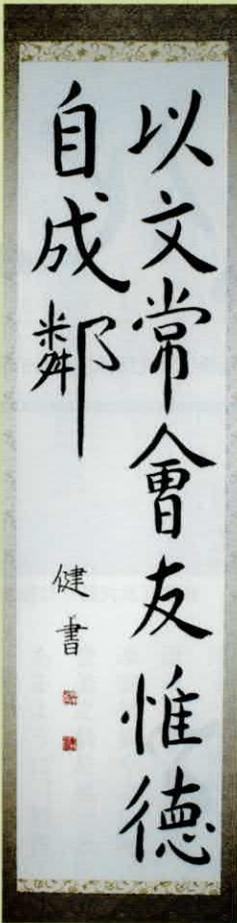 以文常會友惟德
自成鄰
健書